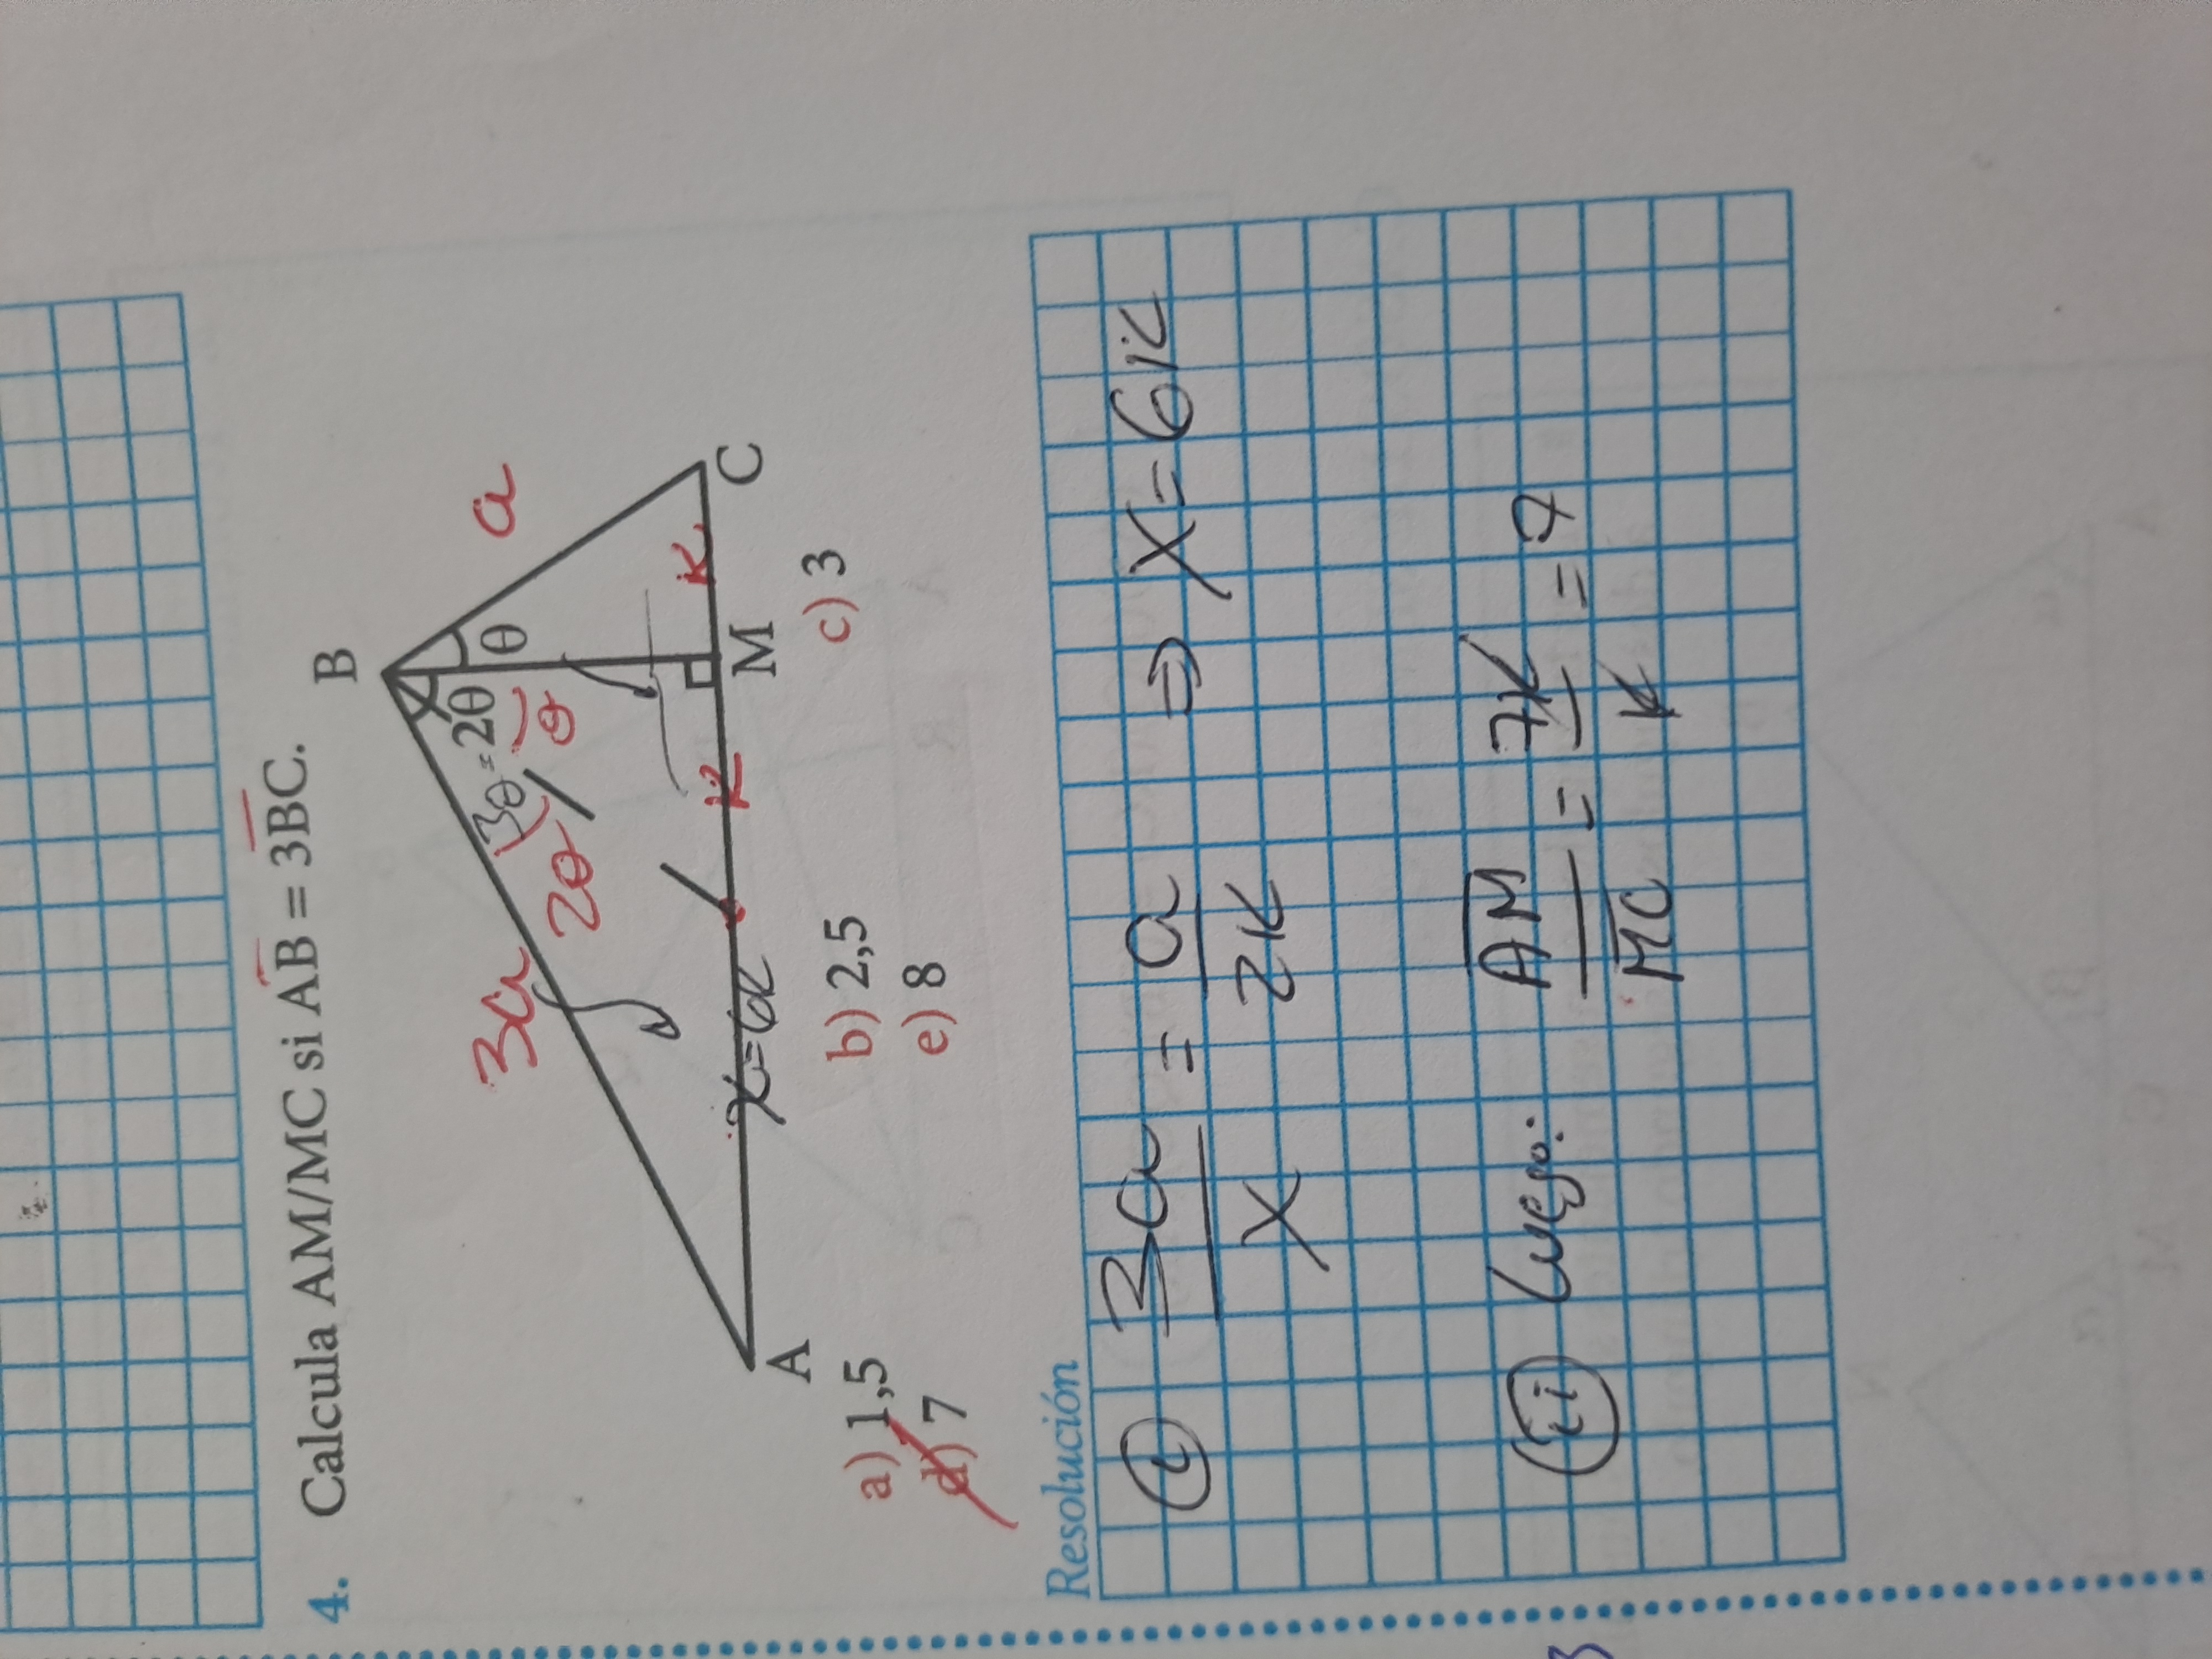 4. Calcula AM/MC si AB = 3BC.
B
3a
3θ = 2θ
θ
a
2θ
θ
x=6k
k
k
A
M
C
a) 1,5
b) 2,5
c) 3
d) 7
e) 8
Resolución
i 3a/x = a/2k ⇒ x = 6k
ii Luego: AM/MC = 7k/k = 7